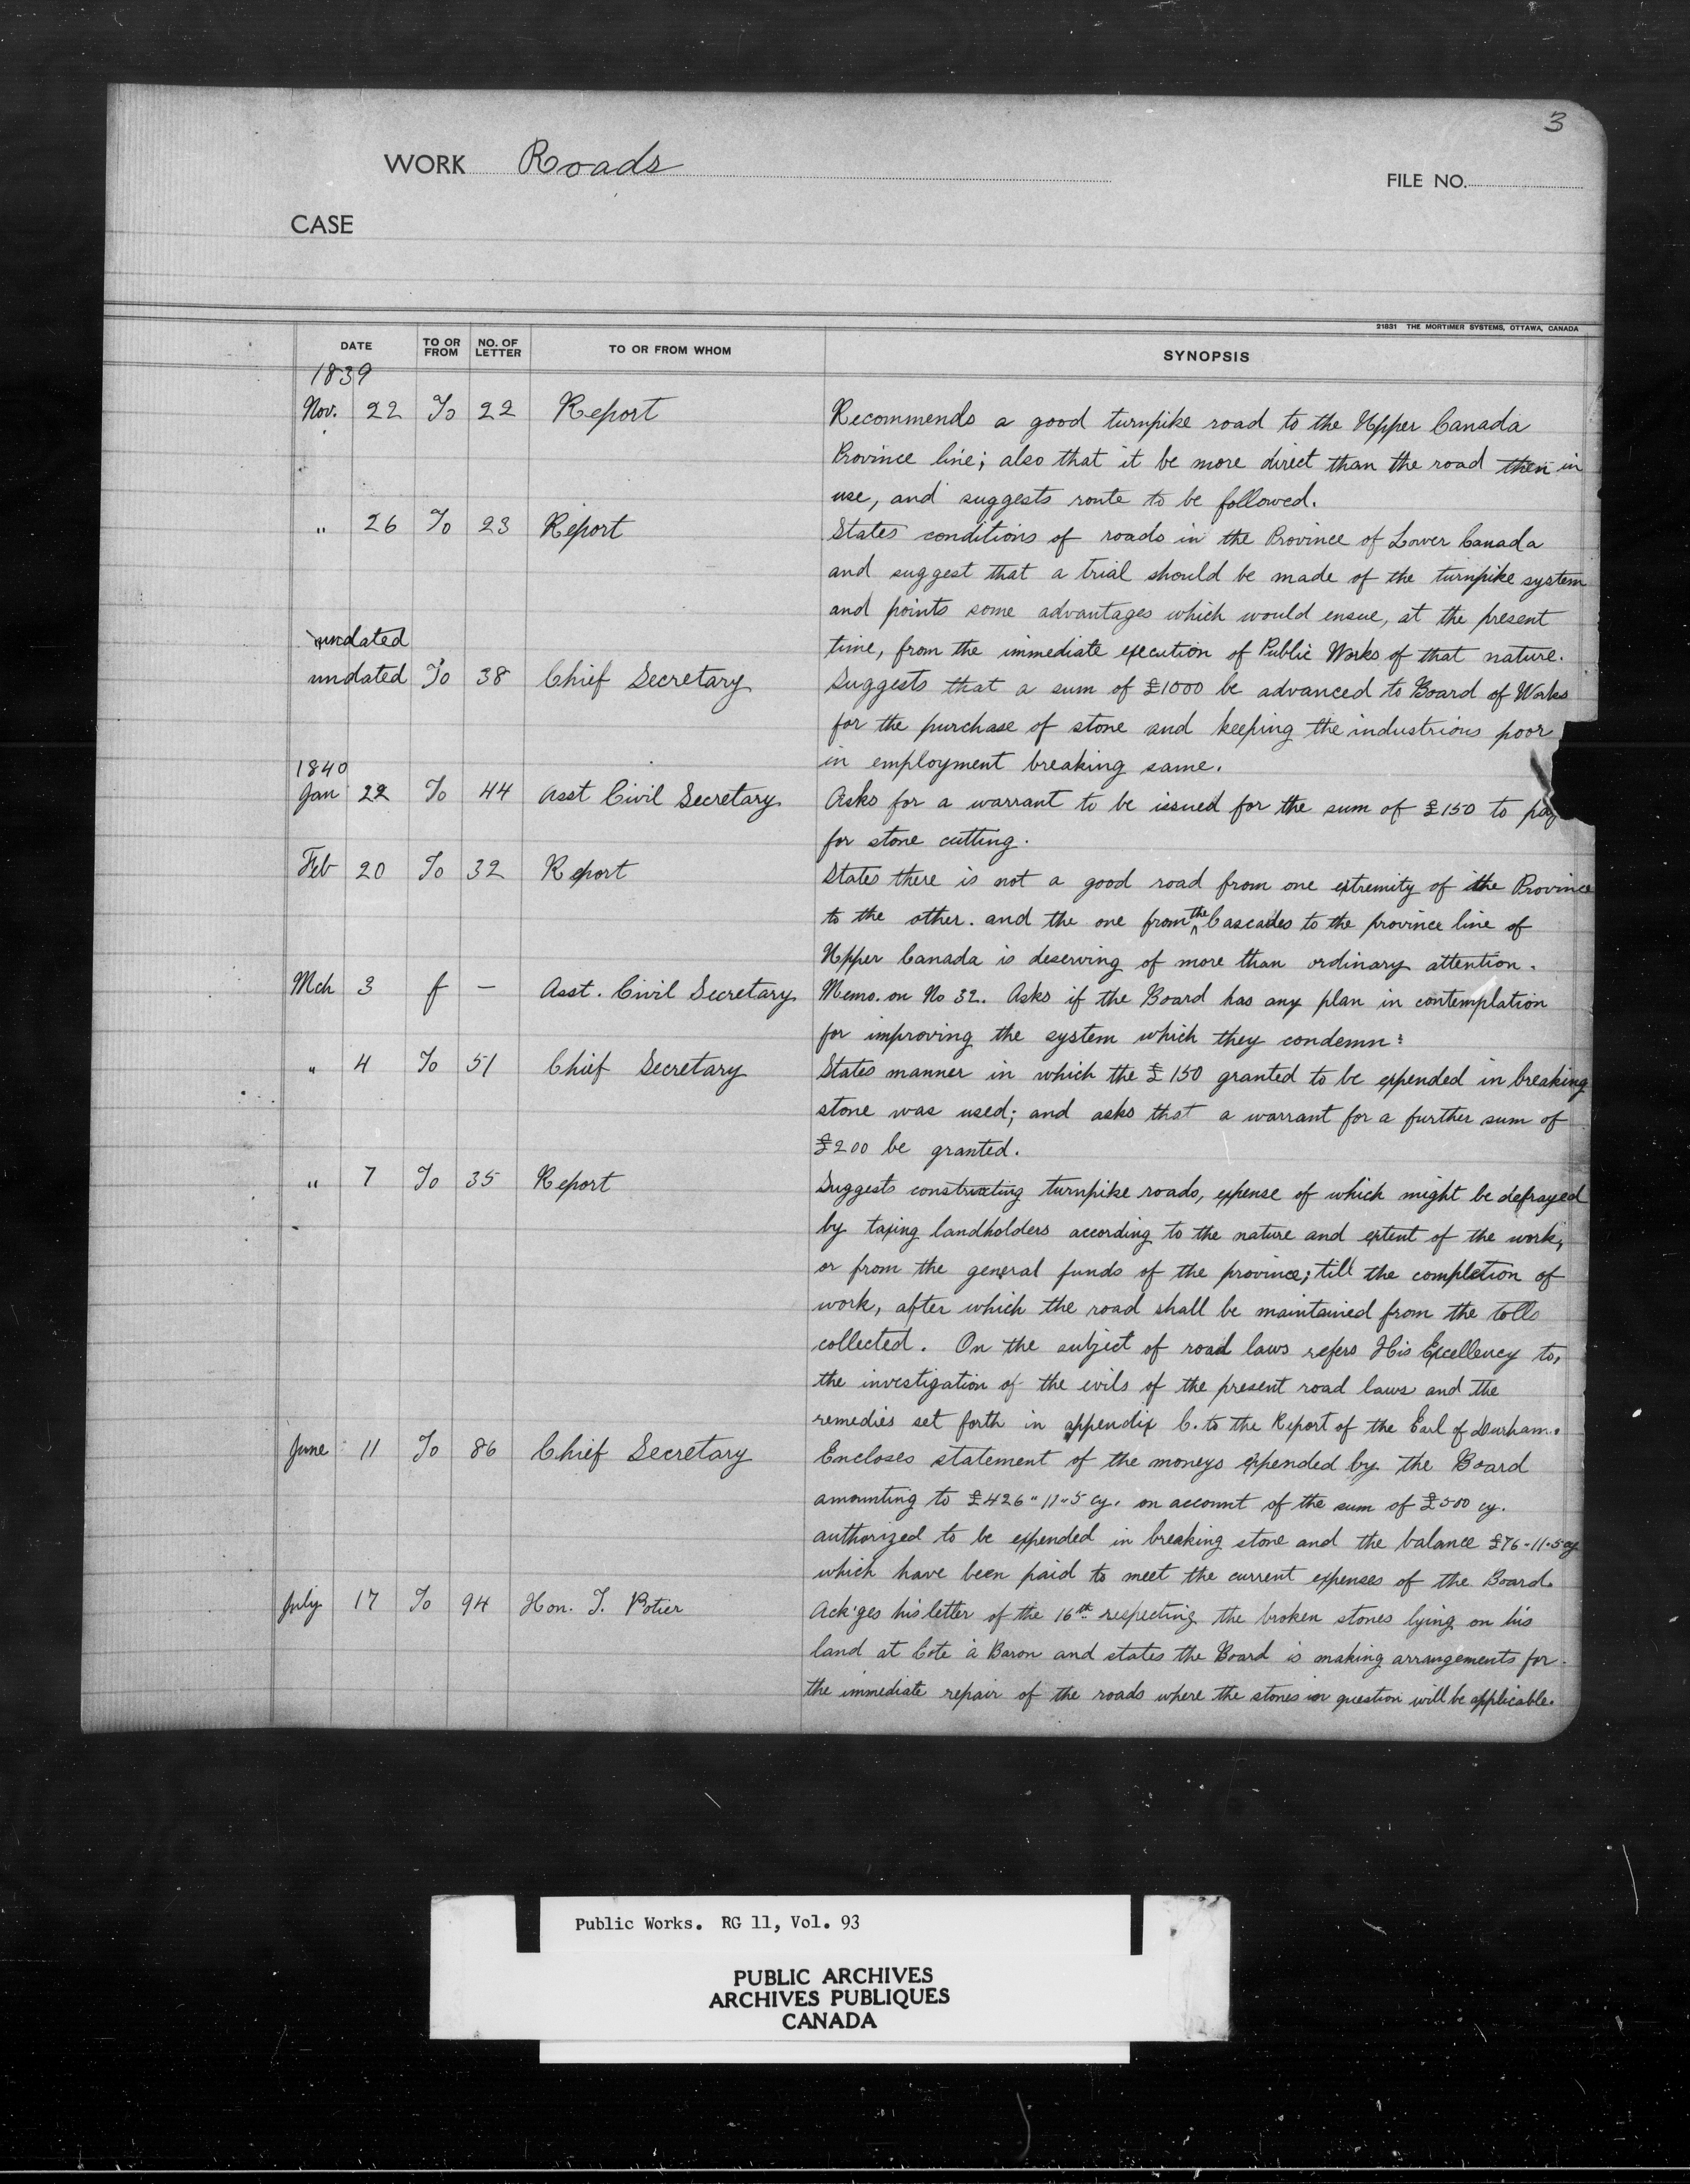 3
WORK Roads
FILE NO.
CASE
21831 THE MORTIMER SYSTEMS, OTTAWA, CANADA
DATE TO OR FROM NO. OF LETTER TO OR FROM WHOM SYNOPSIS
1839
Nov. 22 To 22 Report Recommends a good turnpike road to the Upper Canada
Province line; also that it be more direct than the road then in
use, and suggests route to be followed.
" 26 To 23 Report States conditions of roads in the Province of Lower Canada
and suggest that a trial should be made of the turnpike system
and points some advantages which would ensue, at the present
undated time, from the immediate execution of Public Works of that nature.
undated To 38 Chief Secretary Suggests that a sum of £1000 be advanced to Board of Works
for the purchase of stone and keeping the industrious poor
in employment breaking same.
1840
Jan 22 To 44 Asst Civil Secretary Asks for a warrant to be issued for the sum of £150 to pay
for stone cutting.
Feb 20 To 32 Report States there is not a good road from one extremity of the Province
to the other. and the one from the Cascades to the province line of
Upper Canada is deserving of more than ordinary attention.
Mch 3 f — Asst. Civil Secretary Memo. on No 32. Asks if the Board has any plan in contemplation
for improving the system which they condemn:
" 4 To 51 Chief Secretary States manner in which the £150 granted to be expended in breaking
stone was used; and asks that a warrant for a further sum of
£200 be granted.
" 7 To 35 Report Suggests constructing turnpike roads, expense of which might be defrayed
by taxing landholders according to the nature and extent of the work,
or from the general funds of the province; till the completion of
work, after which the road shall be maintained from the tolls
collected. On the subject of road laws refers His Excellency to,
the investigation of the evils of the present road laws and the
remedies set forth in appendix C. to the Report of the Earl of Durham.
June 11 To 86 Chief Secretary Encloses statement of the moneys expended by the Board
amounting to £426"11"5 cy. on account of the sum of £500 cy.
authorized to be expended in breaking stone and the balance £76-11-5 cy
which have been paid to meet the current expenses of the Board.
July 17 To 94 Hon. T. Potier Ack'ges his letter of the 16th respecting the broken stones lying on his
land at Cote à Baron and states the Board is making arrangements for
the immediate repair of the roads where the stones in question will be applicable.
Public Works. RG 11, Vol. 93
PUBLIC ARCHIVES
ARCHIVES PUBLIQUES
CANADA